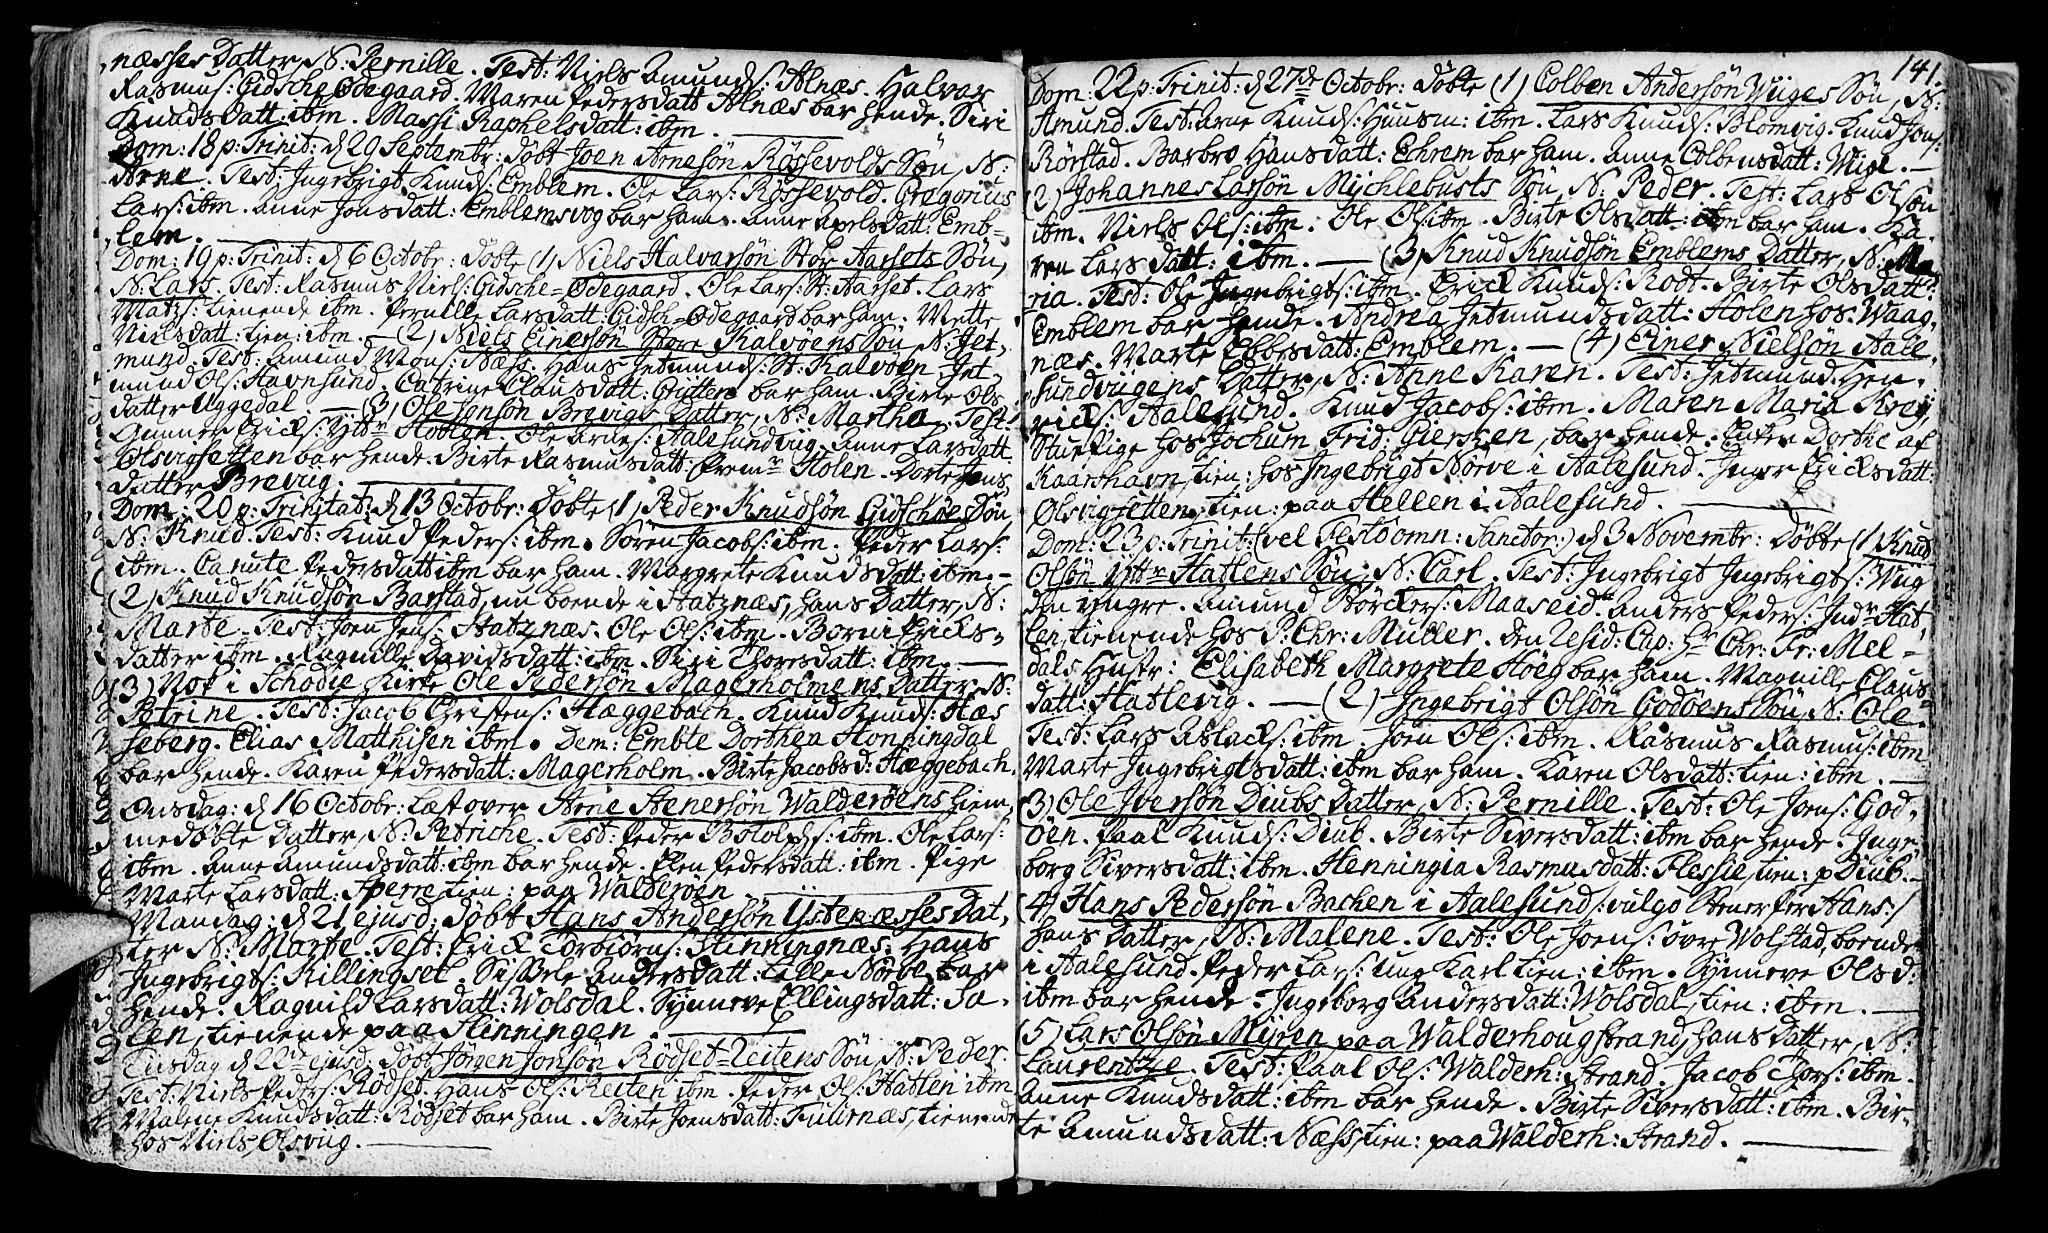 næsses Datter, N: Pernille. Test: Niels Amunds: Alnæs. Halvar
Rasmus: Gidsche Ødegaard. Maren Pedersdatt Alnæs bar hende. Siri
Knudsdatt: ibm. Massi Raphelsdatt: ibm.
Dom: 18 p: Trinit: d 29 Septembr: døbt Joen Arnesön Rössevolds Søn, N:
Arne. Test: Ingebrigt Knuds: Emblem. Ole Lars: Rössevold. Gregorius
Lars: ibm. Anne Jonsdatt: Emblemsvog bar ham. Anne Axelsdatt: Emb=
lem.
Dom: 19 p: Trinit: d 6 Octobr: døbte (1) Niels Halvarsön Stor Aarsets Søn,
N: Lars. Test: Rasmus Niels: Gidsche=Ødegaard. Ole Lars: St: Aarset. Lars
Matzs: tienende ibm. Pernille Larsdatt Gidsch=Ødegaard bar ham. Mette
Nielsdatt: tien: ibm. (2) Niels Einersön Store Kalvöens Søn, N: Jet-
mund. Test: Amund Mons: Næss. Hans Jetmunds: St: Kalvöen. Jet-
mund Ols: Havnsund. Catrine Clausdatt: Giitten bar ham. Birte Ols
datter Uggedal. (3) Ole Jonsön Brevigs Datter, N: Martha. Test:
Gunner Ericks: Ytdr Hoblen. Ole Arnes: Aalesundviig. Anne Larsdatt:
Olsvigsetten bar hende. Birte Rasmusdatt: Frem Holen. Dorte Jens
datter Brevig.
Dom: 20 p: Trinitat: d 13 Octobr: døbte (1) Peder Knudsön Gidsches Søn,
N: Knud. Test: Knud Peders: ibm. Sören Jacobs: ibm. Peder Lars:
ibm. Canute Pedersdatt ibm bar ham. Margrete Knudsdatt: ibm.
(2) Knud Knudsön Barstad, nu boende i Hatznæs, hans Datter, N:
Marte. Test: Joen Jens: Hatznæs. Ole Ols: ibm. Borni Ericks-
datter ibm. Ragnille Davidsdatt: ibm. Siri Thoresdatt: ibm.
(3) Nok i Schodie Kirke Ole Pedersön Magerholmens Datter, N:
Petrine. Test: Jacob Christens: Hæggebach. Knud Knuds: Hæs
seberg. Elias Matthisen ibm. Dem: Embte Dorthea Honningdal
bar hende. Karen Pedersdatt: Magerholm. Birte Jacobsd: Hæggebach.
Onsdag: d 16 Octobr: Læst over Arne Stenersön Walderöens hiem,
medøbte Datter, N: Petriche. Test: Peder Botolphs: ibm. Ole Lars:
ibm. Anne Amundsdatt: ibm bar hende. Elen Pedersdatt: ibm. Pige
Marte Larsdatt: Sperre tien: paa Walderöen.
Mandag: d 21 ejusd: døbt Hans Andersön Ystenæsses Dat-
ter N: Marte. Test: Erick Torbiörns: Slinningnæs: Hans
Ingebrigts: Killingset. Sissele Andersdatt: Lille Nörve bar
hende. Ragnild Larsdatt: Wolsdal. Synneve Ellingsdatt: Sa-
len, tienende paa Slinningen.
Tiisdag d 22de ejusd: døbt Jörgen Jonsön Rödset=Reitens Søn, N: Peder.
Test: Niels Peders: Rödset. Hans Ols: Reiten ibm. Peder Ols: Hatlen ibm.
Malene Knudsdatt: Rödset bar ham. Birte Joensdatt: Tulernæs, tienende
hos Niels Olsvig.
141.
Dom: 22 p: Trinit: d 27de Octobr: døbte (1) Colben Andersön Wiiges Søn, N:
Amund. Test: Arne Knuds: Huusm: ibm. Lars Knuds: Blomvig. Knud Jons:
Rörstad. Barbro Hansdatt: Echrem bar ham. Anne Colbensdatt: Wige.
(2) Johannes Larsön Mychlebusts Søn, N: Peder. Test: Lars Olsön
ibm. Niels Ols: ibm. Ole Ols: ibm. Birte Olsdatt: ibm bar ham. Ka-
ren Larsdatt: ibm. (3) Knud Knudsön Emblems Datter, N: Ma-
ria. Test: Ole Ingebrigts: ibm. Erick Knuds: Rodt. Birte Olsdatt:
Emblem bar hende. Andrea Jetmundsdatt: Holen hos Waag-
næs. Marte Ebbesdatt: Emblem. (4) Einer Nielsön Aale-
sundvigens Datter, N: Anne Karen. Test: Jetmund Hen-
ricks: Aalesund. Knud Jacobs: ibm. Maren Maria Krey,
StuePige hos Jochum Frid: Giersten, bar hende. Enken Dorthe af
Kaarshavn, tien: hos Ingebrigt Nörve i Aalesund. Inger Ericksdatt:
Olsvigsetten, tien: paa Hellen i Aalesund.
Dom: 23 p: Trinit: (vel Festo omn: Sanctor:) d 3 Novembr: døbte (1) Knud
Olsön Yttr Hatlens Søn, N: Carl. Test: Ingebrigt Ingebrigts: Wiig
den yngre. Amund Störckers: Maaseid. Anders Peders: Indr Hat-
len, tienende hos P: Chr: Müller. Den Resid: Cap: Hr Chr: Fr: Mel-
dals Hustr: Elisabeth Margrete Höeg bar ham. Magnille Claus
datt: Hatlevig. (2) Ingebrigt Olsön Godöens Søn, N: Ole.
Test: Lars Aslacks: ibm. Joen Ols: ibm. Rasmus Rasmus: ibm
Marte Ingebrigtsdatt: ibm bar ham. Karen Olsdatt: tien: ibm.
3) Ole Iversön Diubs Datter, N: Pernille. Test: Ole Jons: God-
öen. Paal Knuds: Diub. Birte Siversdatt: ibm bar hende. Inge-
borg Siversdatt: ibm. Henningia Rasmusdatt: Flessie, tien: p Diub.
(4) Hans Pedersön Bachen i Aalesund /: vulgo Stener Per Hans:/
hans Datter, N: Malene. Test: Ole Joens: övre Wolstad, boende
i Aalesund. Peder Lars: ung Karl tien: ibm. Synneve Olsd:
ibm bar hende. Ingeborg Andersdatt: Wolsdal, tien: ibm.
(5) Lars Olsön Myren paa Walderhougstrand, hans Datter, N:
Laurentze. Test: Paal Ols: Walderh: Strand. Jacob Thors: ibm.
Anne Knudsdatt: ibm bar hende. Birte Siversdatt: ibm. Bir-
te Amundsdatt: Næss, tien: paa Walderh: Strand.